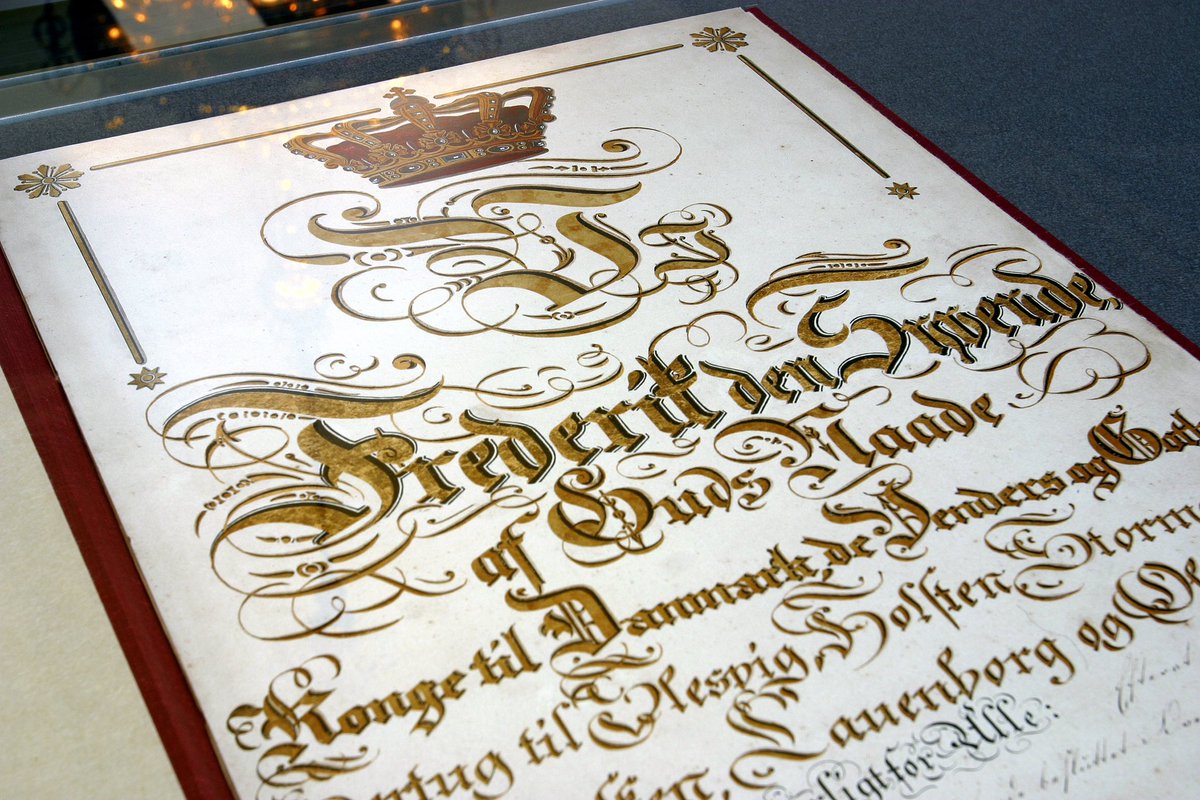 Frederik den Syvende,
af Guds Naade
Konge til Danmark, de Venders og Goth
ertug til Slesvig, Holsten Storm
sken, Lauenborg og O
ligt for Alle:
Efterat
besluttet